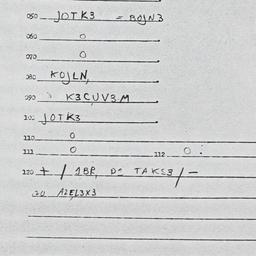 050 JOTK3 = BOJN3
060 0
070 0
080 KOJLN,
090 K3CUV3.M
10. JOTK3
110 0
111 0 112 0 .
120 + / 1BR, DE TAKS3 / -
20 AZEL3X3